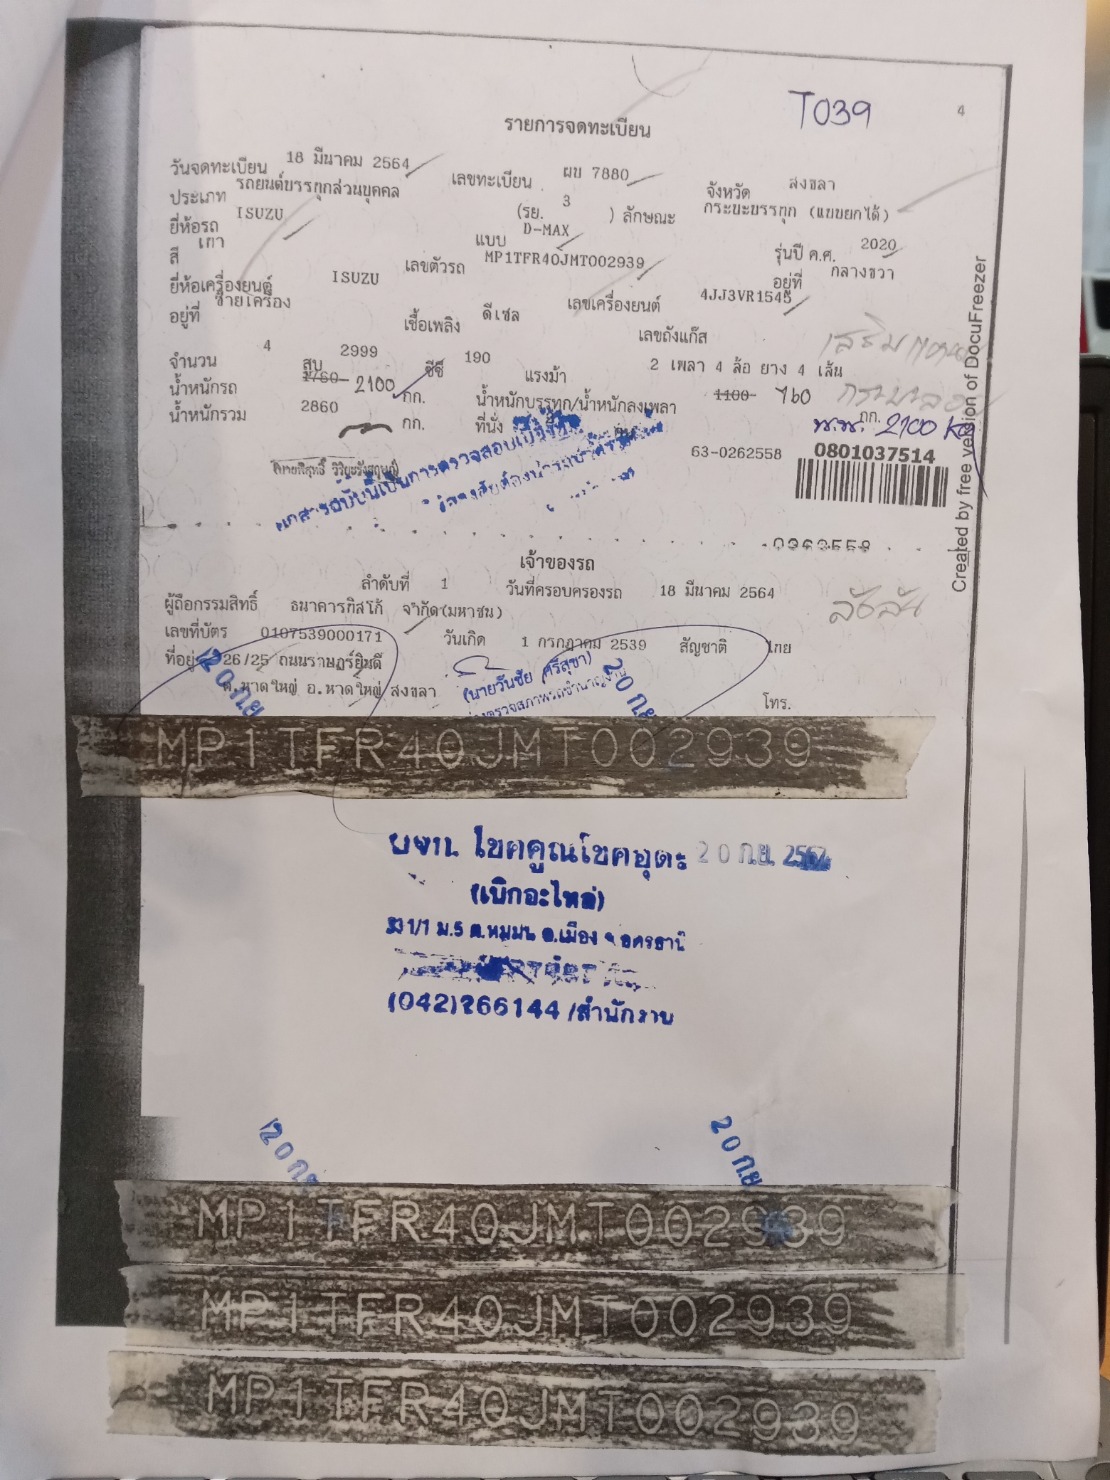 T039
4
รายการจดทะเบียน
วันจดทะเบียน 18 มีนาคม 2564 เลขทะเบียน ผข 7880 จังหวัด สงขลา
ประเภท รถยนต์บรรทุกส่วนบุคคล (รย. 3 ) ลักษณะ กระบะบรรทุก (แบบยกได้)
ยี่ห้อรถ ISUZU แบบ D-MAX รุ่นปี ค.ศ. 2020
สี เทา เลขตัวรถ MP1TFR40JMT002939 อยู่ที่ กลางขวา
ยี่ห้อเครื่องยนต์ ISUZU เลขเครื่องยนต์ 4JJ3VR1545
อยู่ที่ ซ้ายเครื่อง เชื้อเพลิง ดีเซล เลขถังแก๊ส
จำนวน 4 สูบ 2999 ซีซี 190 แรงม้า 2 เพลา 4 ล้อ ยาง 4 เส้น
น้ำหนักรถ 1760 2100 กก. น้ำหนักบรรทุก/น้ำหนักลงเพลา 1100 760 กก.
น้ำหนักรวม 2860 กก. ที่นั่ง
2100 KG
63-0262558
0801037514
เอกสารฉบับนี้เป็นการตรวจสอบเบื้องต้น
0363558
เจ้าของรถ
ลำดับที่ 1 วันที่ครอบครองรถ 18 มีนาคม 2564
ผู้ถือกรรมสิทธิ์ ธนาคารทิสโก้ จำกัด(มหาชน)
เลขที่บัตร 0107539000171 วันเกิด 1 กรกฎาคม 2539 สัญชาติ ไทย
ที่อยู่ 26/25 ถนนราษฎร์ยินดี
ต.หาดใหญ่ อ.หาดใหญ่ สงขลา โทร.
(นายวันชัย ศรีสุขา)
20 ก.ย.
20 ก.ย.
MP1TFR40JMT002939
บจก. โชคคูณโชคอุดร 20 ก.ย. 2564
(เบิกอะไหล่)
ม.5 ต.หมูม่น อ.เมือง จ.อุดรธานี
(042)266144/สำนักงาน
20 ก.ย
20 ก.ย
MP1TFR40JMT002939
MP1TFR40JMT002939
MP1TFR40JMT002939
Created by free version of DocuFreezer